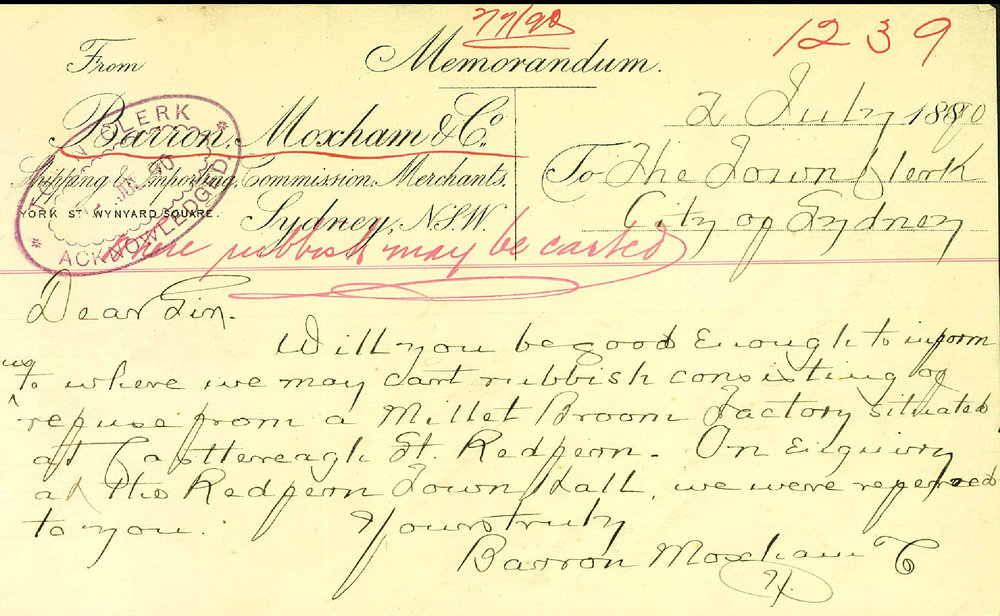 77/90
1239
From
Memorandum.
2 July 1890
Barron, Moxham & Co.
Shipping & Importing, Commission, Merchants,
YORK ST WYNYARD SQUARE.
Sydney, N.S.W.
To The Town Clerk
City of Sydney
TOWN CLERK
90
ACKNOWLEDGED.
Where rubbish may be carted
Dear Sir.
Will you be good Enough to inform
us
to where we may cart rubbish consisting of
refuse from a Millet Broom Factory situated
at Castlereagh St. Redfern. On Enquiry
at the Redfern Town Hall, we were referred
to you.
Yours truly
Barron Moxham & Co